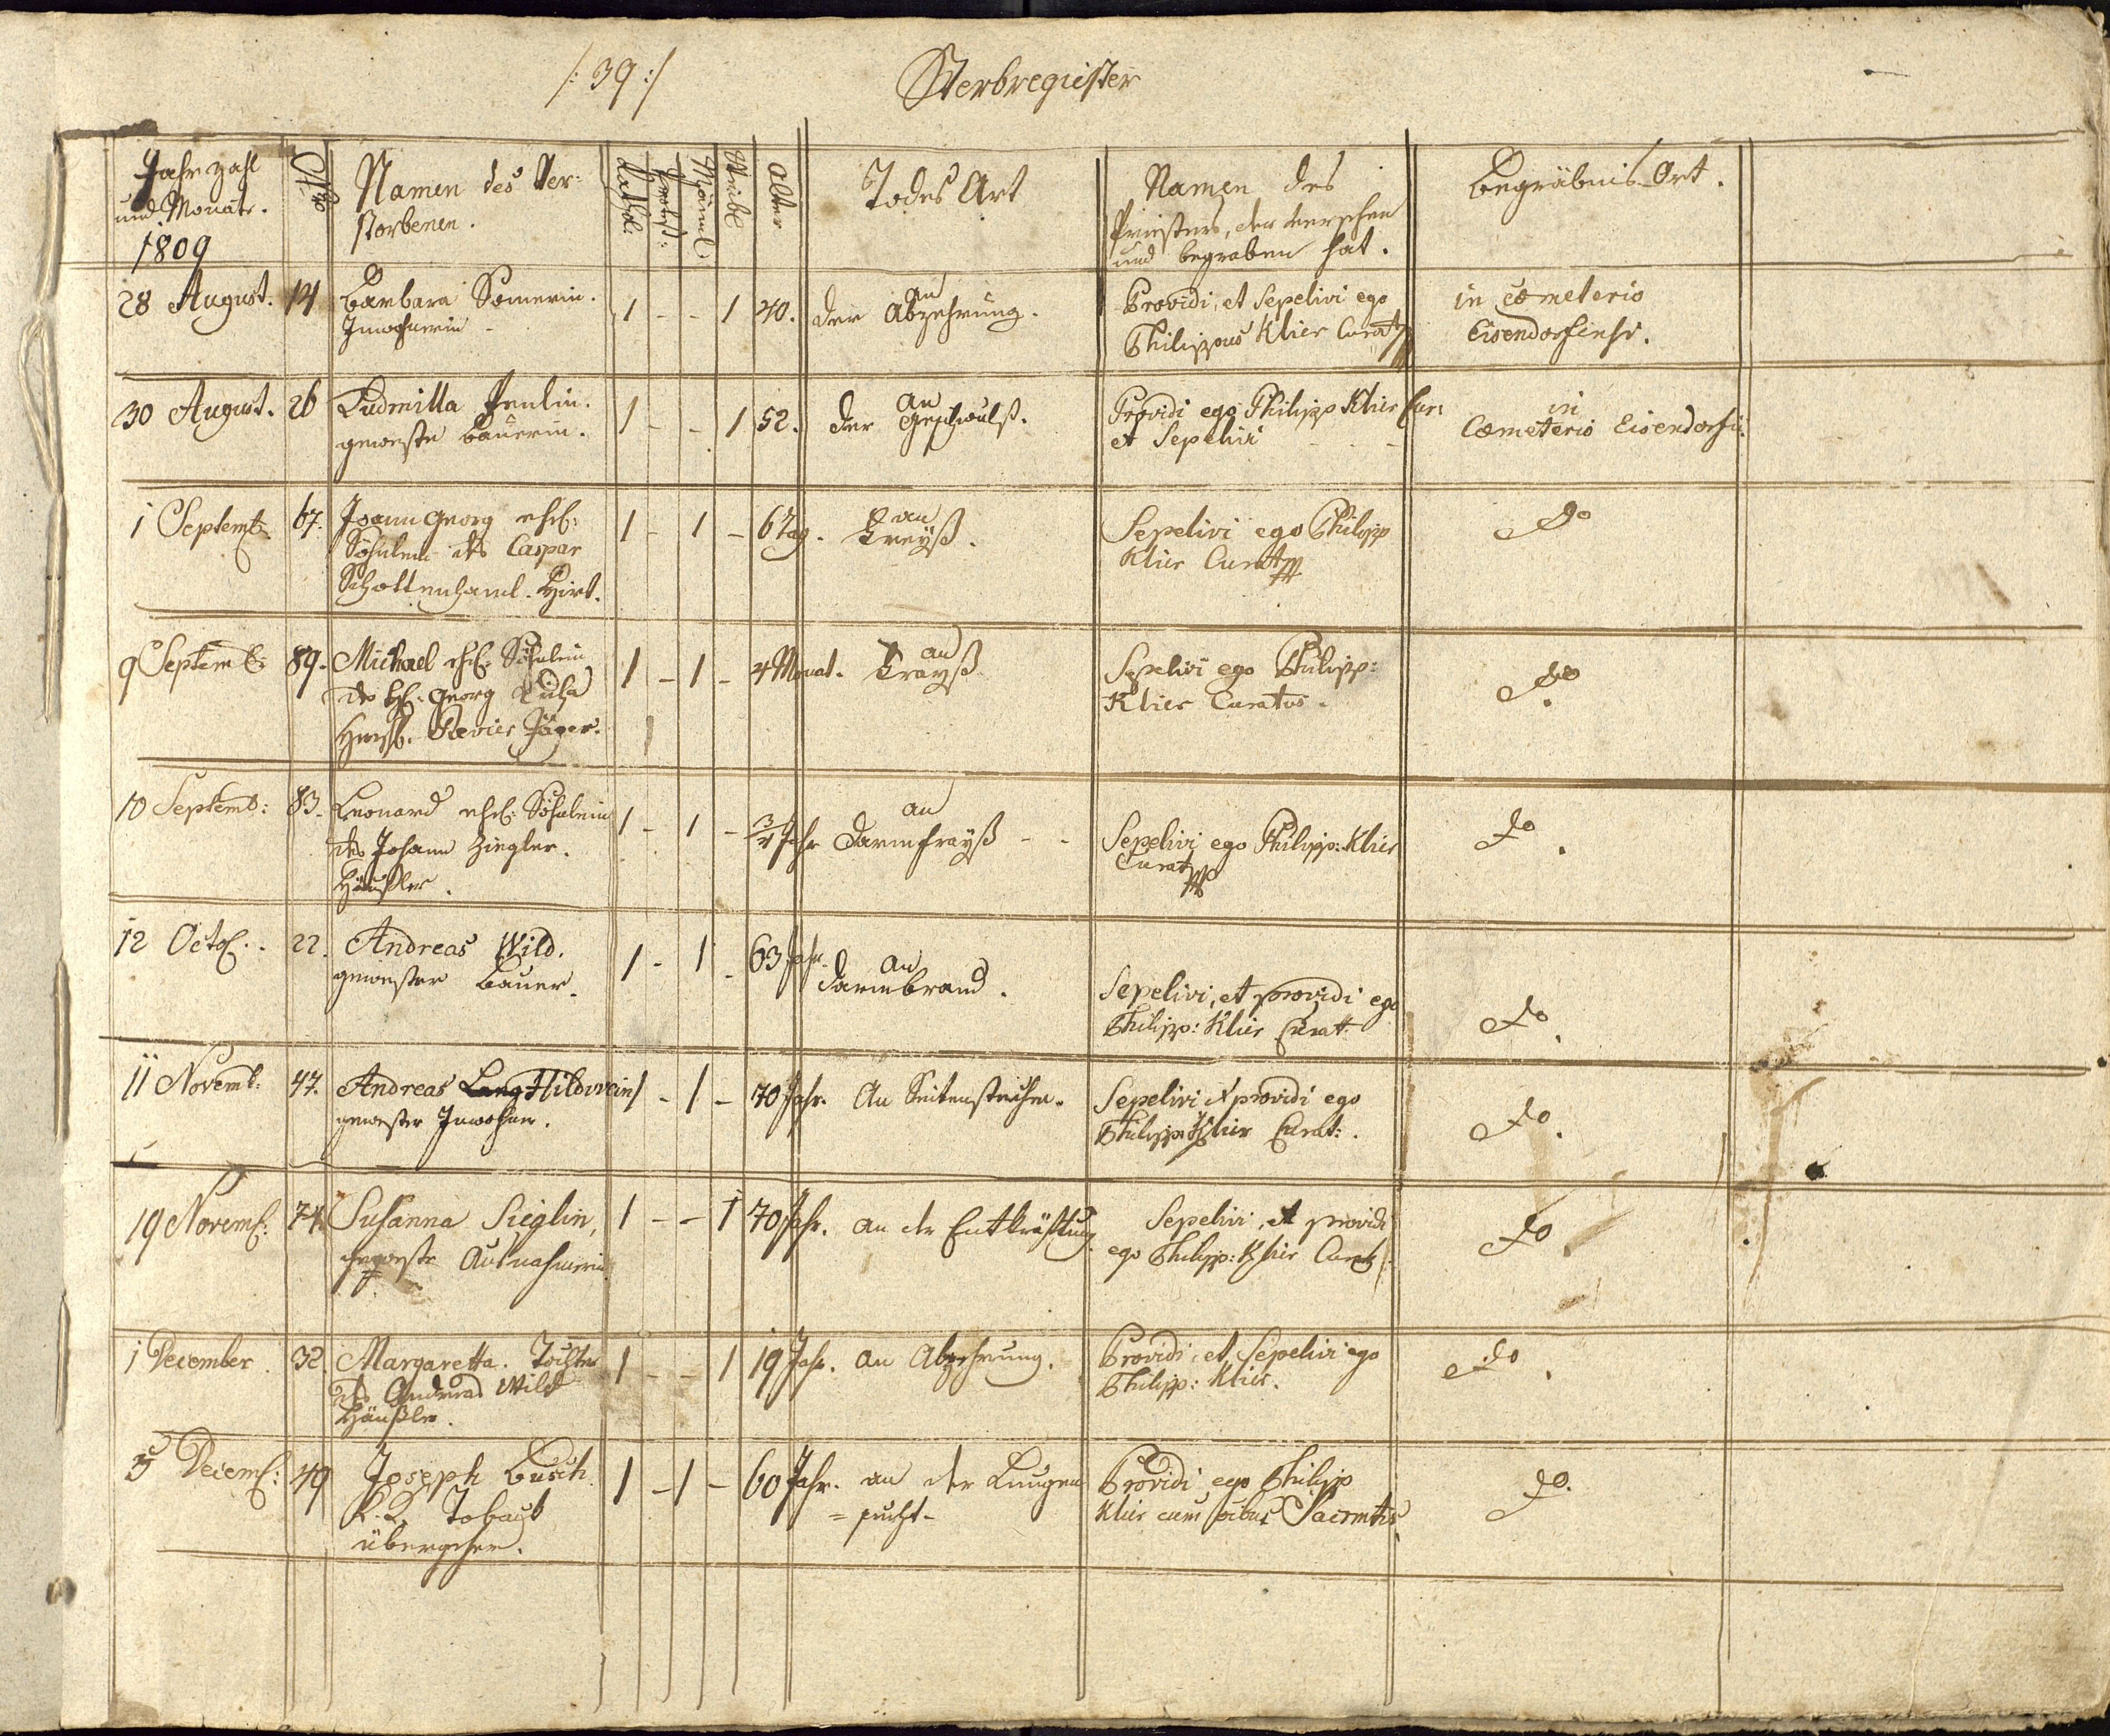 /: 39 :/ Sterbregister
Jahrzahl
und Monate.
1809
Nro
Namen des Ver-
storbenen.
Kathol.
Protest:
Mänl.
Weibl.
Alter
Todes Art
Namen des
Priesters, der versehen
und begraben hat.
Begräbnis Ort.
28 August. 14 Barbara Somerin. 1 - - 1 40. an
Inwohnerin - der Abzehrung.
Providi, et Sepelivi ego
Philippus Klier Curat
in Cœmeterio
Eisendorfensi.
30 August. 26 Ludmilla
geweste Bäuerin. 1 - - 1 52. an
der Geschwulst.
Providi ego Philipp Klier Cur:
et Sepelivi - - -
in
Cœmeterio Eisendorfii.
1 Septemb 67. Joann Georg ehel: 1 - 1 - 6 Tag. an
Söhnlein des Caspar Freyß.
Schottenhaml. Hirt.
Sepelivi ego Philipp
Klier Curat
do
9 Septemb 89. Michael ehel. Söhnlein 1 - 1 - 4 Monat. an
des H: Georg Frayß
Revier Jäger.
Sepelivi ego Philipp:
Klier Curatus.
do.
10 Septemb: 83. Leonard ehel: Söhnlein 1 - 1 - 3/4 Jahr an
des Johann Ziegler. Darmfrayß - -
Häußler.
Sepelivi ego Philipp: Klier
Curat
do.
12 Octob. 22. Andreas Wild. 1 - 1 - 63 Jahr. an
gewester Bauer. Darmbrand.
Sepelivi, et providi ego
Philipp: Klier Curat
do.
11 Novemb: 47. Andreas Lang Hildwein 1 - 1 - 70 Jahr. An Seitenstechen.
gewester Inwohner.
Sepelivi et providi ego
Philipp Klier Curat:.
do.
19 Novemb: 74. Susanna Sieglin, 1 - - 1 70 Jahr. an der Entkräftung.
geweste Ausnahmerin
Sepelivi, et providi
ego Philipp: Klier Curat
do.
1 December. 32. Margaretta. Tochter 1 - - 1 19 Jahr. an Abzehrung.
des Andreas Wild
Häußler.
Providi, et Sepelivi ego
Philipp: Klier.
do.
5 Decemb: 49 Joseph Busch. 1 - 1 - 60 Jahr. an der Lungen
K. K. Toback = sucht -
übergeher.
Providi ego Philipp
Klier cum Sacrmtis
do.